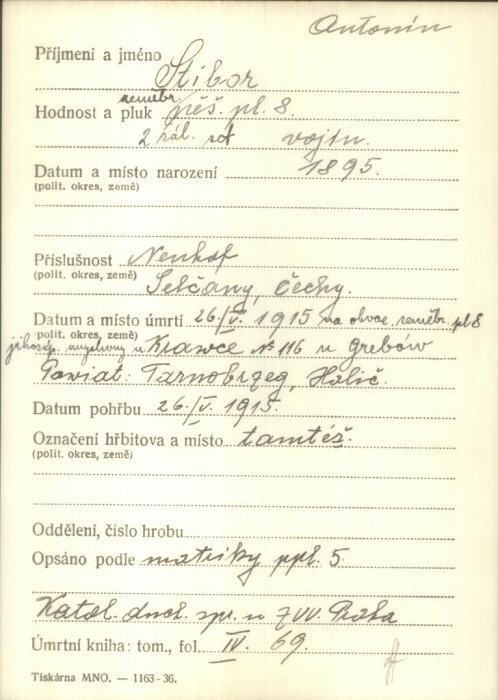 Antonín
Příjmení a jméno
Stibor
zeměbr.
Hodnost a pluk pěš. pl. 8.
2 zál. set. vojín.
Datum a místo narození 1895.
(polit. okres, země)
Příslušnost Neuhof
(polit. okres, země) Selčany, Čechy.
Datum a místo úmrtí 26/V. 1915 na obvaz. zeměbr. pl 8
(polit. okres, země)
u Krawce № 116 u Grebów
Powiat: Tarnobrzeg, Halič.
Datum pohřbu 26./V. 1915.
Označení hřbitova a místo tamtéž.
(polit. okres, země)
Oddělení, číslo hrobu
Opsáno podle matriky ppl. 5.
Katol. duch. spr. u ZVV. Praha
Úmrtní kniha: tom., fol. IV. 69.
Tiskárna MNO. — 1163-36.